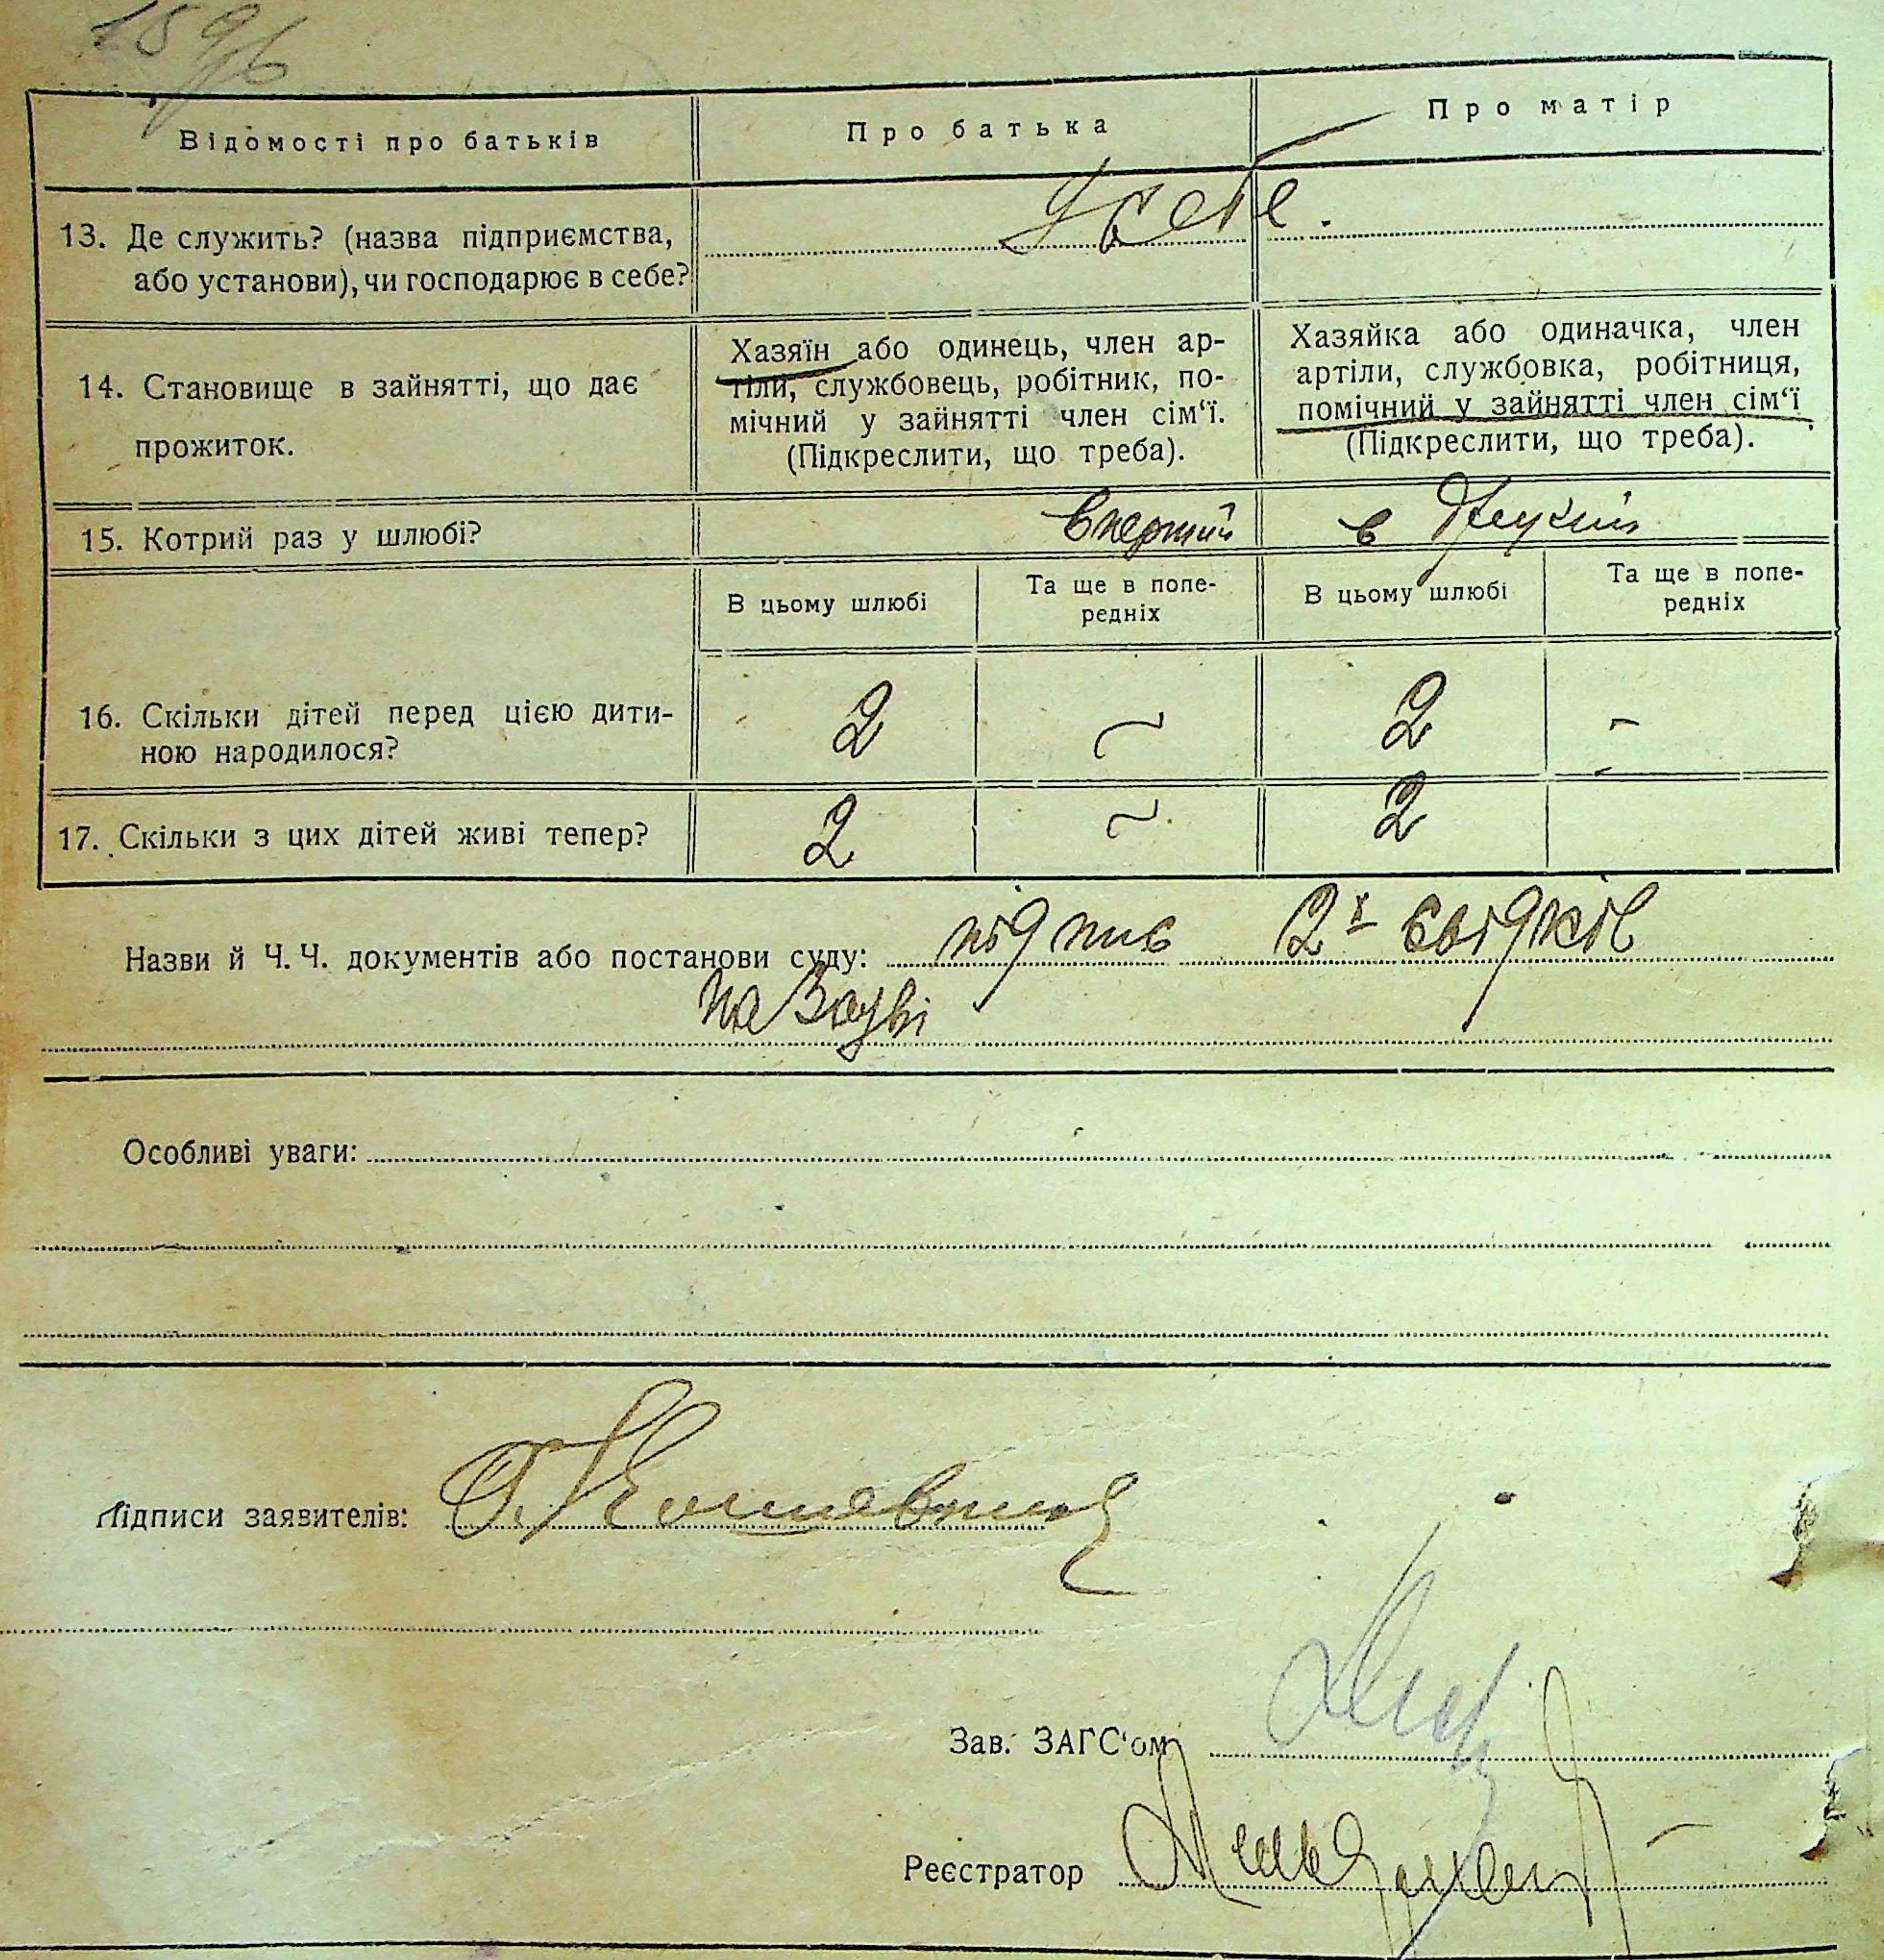 Відомості про батьків
Про батька
Про матір
13. Де служить? (назва підприємства,
або установи), чи господарює в себе?
У себе.
14. Становище в зайнятті, що дає
прожиток.
Хазяїн або одинець, член ар-
тіли, службовець, робітник, по-
мічний у зайнятті член сім‘ї.
(Підкреслити, що треба).
Хазяйка або одиначка, член
артіли, службовка, робітниця,
помічний у зайнятті член сім‘ї
(Підкреслити, що треба).
15. Котрий раз у шлюбі?
в
В цьому шлюбі
Та ще в попе-
редніх
В цьому шлюбі
Та ще в попе-
редніх
16. Скільки дітей перед цією дити-
ною народилося?
2 ~ 2 -
17. Скільки з цих дітей живі тепер?
2 ~ 2
Назви й Ч.Ч. документів або постанови суду: підпис 2х свідків
на заяві
Особливі уваги:
Підписи заявителів:
Зав. ЗАГС‘ом
Реєстратор